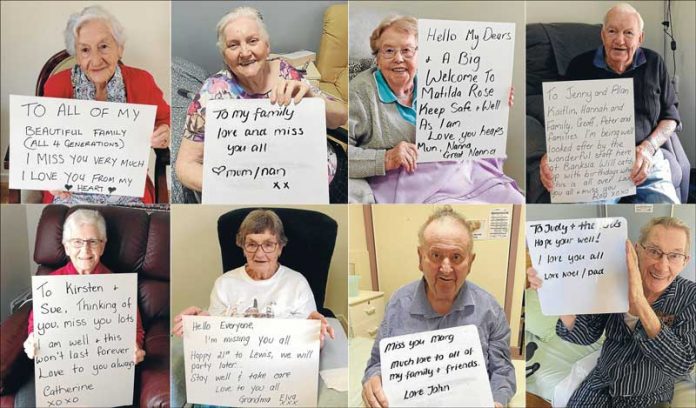 TO ALL OF MY
BEAUTIFUL FAMILY
(ALL 4 GENERATIONS)
I MISS YOU VERY MUCH
I LOVE YOU FROM MY
HEART
To my family
love and miss
you all
mum/nan
xx
Hello My Dears
+ A Big
Welcome To
Matilda Rose
Keep Safe + Well
As I am
Love, you heaps
Mum, Nanna
Great Nanna
To Jenny and Alan
Kaitlin, Hannah and
Family, Geoff, Peter and
Families I'm being well
looked after by the
wonderful staff here
at Banksia. will catch
up with birthdays when
this is all over love
you all + miss you xoxo
To Kirsten +
Sue, Thinking of
you, miss you lots
I am well + this
won't last forever
Love to you always
Catherine
xoxo
Hello Everyone,
I'm missing you all
Happy 21st to Lewis, we will
party later...
Stay well + take care
Love to you all
Grandma Elva
xxx
Miss you Marg
Much love to all of
my family + friends.
Love John
To Judy + the
Hope your well!
I love you all
Love Noel/Dad